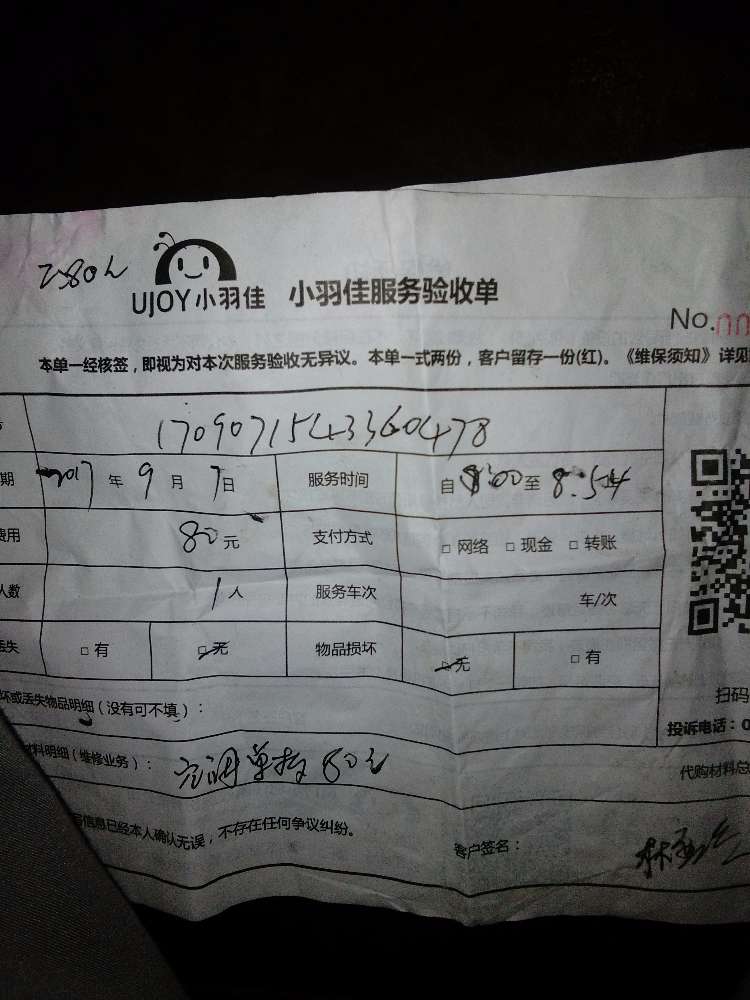 UJOY小羽佳 小羽佳服务验收单
No.
本单一经核签，即视为对本次服务验收无异议。本单一式两份，客户留存一份(红)。《维保须知》详见
1709071543360478
期 2017 年 9 月 7 日 服务时间 自 8:00 至 8:54
费用 80 元 支付方式 □ 网络 □ 现金 □ 转账
人数 1 人 服务车次 车/次
丢失 □ 有 □ 无 物品损坏 □ 无 □ 有
坏或丢失物品明细（没有可不填）：
扫码
投诉电话：0
材料明细（维修业务）： 80元
代购材料总
信息已经本人确认无误，不存在任何争议纠纷。
客户签名：